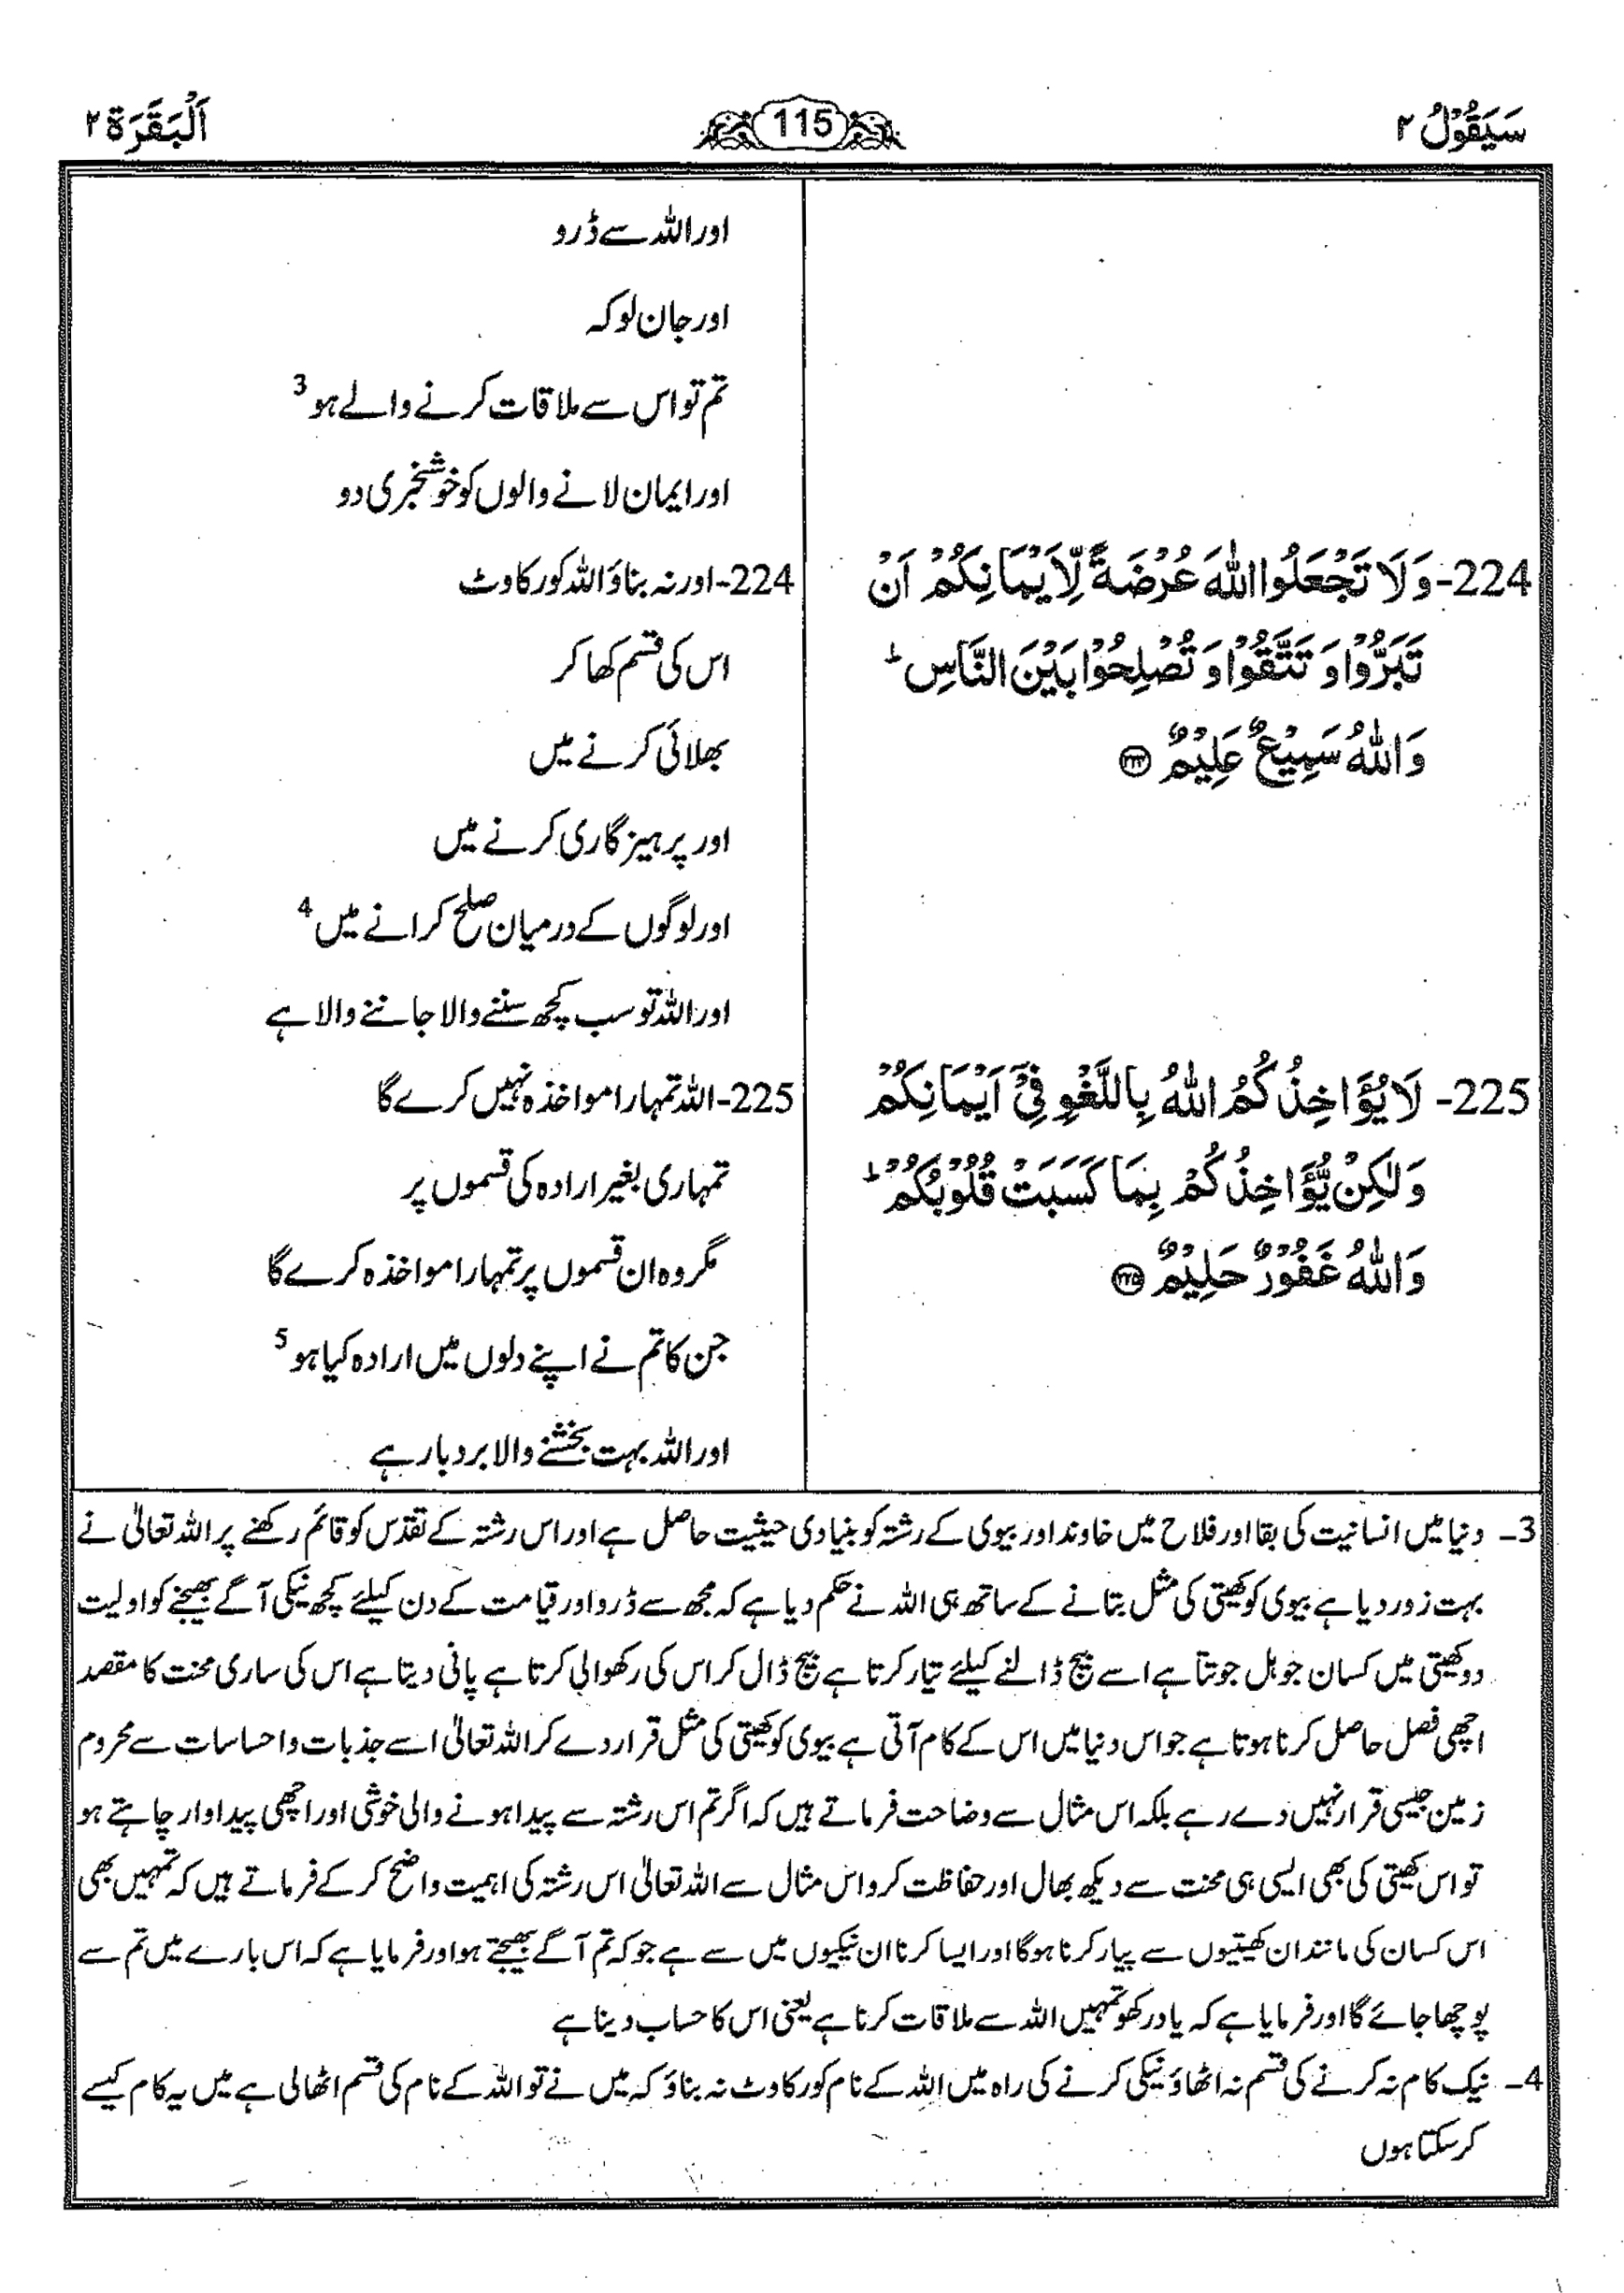 سَيَقُوْلُ ٢
115
اَلْبَقَرَة ٢
224-وَلَا تَجْعَلُوا اللّٰهَ عُرْضَةً لِّاَيْمَانِكُمْ اَنْ
تَبَرُّوْا وَ تَتَّقُوْا وَ تُصْلِحُوْا بَيْنَ النَّاسِ ؕ
وَاللّٰهُ سَمِيْعٌ عَلِيْمٌ ۝۲۲۴
225- لَا يُؤَاخِذُكُمُ اللّٰهُ بِاللَّغْوِ فِىْٓ اَيْمَانِكُمْ
وَلٰكِنْ يُّؤَاخِذُكُمْ بِمَا كَسَبَتْ قُلُوْبُكُمْ ؕ
وَاللّٰهُ غَفُوْرٌ حَلِيْمٌ ۝۲۲۵
اور اللہ سے ڈرو
اور جان لو کہ
تم تو اس سے ملاقات کرنے والے ہو 3
اور ایمان لانے والوں کو خوشخبری دو
224-اور نہ بناؤ اللہ کو رکاوٹ
اس کی قسم کھا کر
بھلائی کرنے میں
اور پرہیزگاری کرنے میں
اور لوگوں کے درمیان صلح کرانے میں 4
اور اللہ تو سب کچھ سننے والا جاننے والا ہے
225-اللہ تمہارا مواخذہ نہیں کرے گا
تمہاری بغیر ارادہ کی قسموں پر
مگر وہ ان قسموں پر تمہارا مواخذہ کرے گا
جن کا تم نے اپنے دلوں میں ارادہ کیا ہو 5
اور اللہ بہت بخشنے والا بردبار ہے
3۔ دنیا میں انسانیت کی بقا اور فلاح میں خاوند اور بیوی کے رشتہ کو بنیادی حیثیت حاصل ہے اور اس رشتہ کے تقدّس کو قائم رکھنے پر اللہ تعالیٰ نے
بہت زور دیا ہے بیوی کو کھیتی کی مثل بتانے کے ساتھ ہی اللہ نے حکم دیا ہے کہ مجھ سے ڈرو اور قیامت کے دن کیلئے کچھ نیکی آگے بھیجنے کو اولیت
دو کھیتی میں کسان جو ہل جوتتا ہے اسے بیج ڈالنے کیلئے تیار کرتا ہے بیج ڈال کر اس کی رکھوالی کرتا ہے پانی دیتا ہے اس کی ساری محنت کا مقصد
اچھی فصل حاصل کرنا ہوتا ہے جو اس دنیا میں اس کے کام آتی ہے بیوی کو کھیتی کی مثل قرار دے کر اللہ تعالیٰ اسے جذبات و احساسات سے محروم
زمین جیسی قرار نہیں دے رہے بلکہ اس مثال سے وضاحت فرماتے ہیں کہ اگر تم اس رشتہ سے پیدا ہونے والی خوشی اور اچھی پیداوار چاہتے ہو
تو اس کھیتی کی بھی ایسی ہی محنت سے دیکھ بھال اور حفاظت کرو اس مثال سے اللہ تعالیٰ اس رشتہ کی اہمیت واضح کر کے فرماتے ہیں کہ تمہیں بھی
اس کسان کی مانند ان کھیتیوں سے پیار کرنا ہوگا اور ایسا کرنا ان نیکیوں میں سے ہے جو کہ تم آگے بھیجتے ہو اور فرمایا ہے کہ اس بارے میں تم سے
پوچھا جائے گا اور فرمایا ہے کہ یاد رکھو تمہیں اللہ سے ملاقات کرنا ہے یعنی اس کا حساب دینا ہے
4۔ نیک کام نہ کرنے کی قسم نہ اٹھاؤ نیکی کرنے کی راہ میں اللہ کے نام کو رکاوٹ نہ بناؤ کہ میں نے تو اللہ کے نام کی قسم اٹھالی ہے میں یہ کام کیسے
کر سکتا ہوں